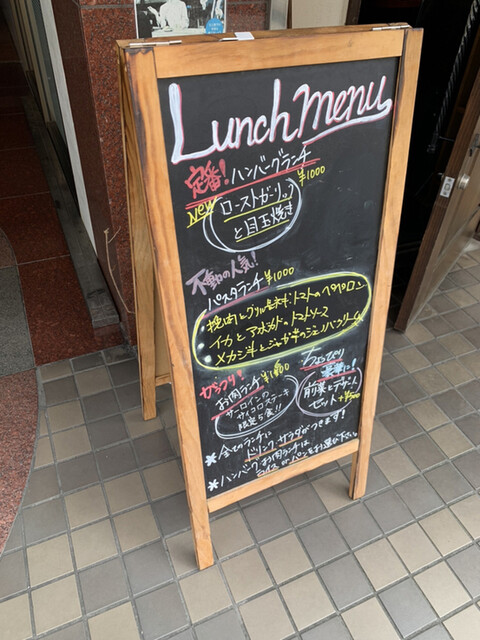 Lunch menu
定番! ハンバーグランチ
¥1000
New ローストガーリック
と目玉焼き
不動の人気!
パスタランチ ¥1000
挽肉とグリル長ネギ・トマトのペペロン
イカとアボカドのトマトソース
メカジキとじゃが芋のジェノバクリーム
がっつり!
お肉ランチ ¥1400
サーロインの
サイコロステーキ
限定5食!!
ちょっぴり
豪華に!
前菜とデザート
セット +¥500
※全てのランチに
ドリンク、サラダがつきます!
※ハンバーグ、お肉ランチは
ライスorパンをお選び下さい。